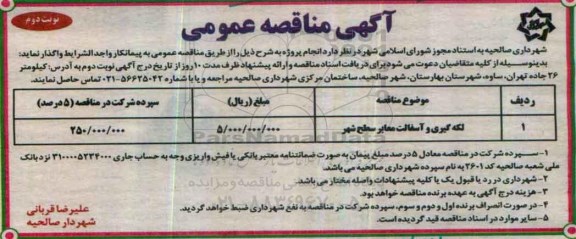 نوبت دوم
آگهی مناقصه عمومی
شهرداری صالحیه به استناد مجوز شورای اسلامی شهر در نظر دارد انجام پروژه به شرح ذیل را از طریق مناقصه عمومی به پیمانکار واجد الشرایط واگذار نماید:
بدینوسیله از کلیه متقاضیان دعوت می شود برای دریافت اسناد مناقصه و ارائه پیشنهاد ظرف مدت ۱۰ روز از تاریخ درج آگهی نوبت دوم به آدرس: کیلومتر
۲۶ جاده تهران، ساوه، شهرستان بهارستان، شهر صالحیه، ساختمان مرکزی شهرداری صالحیه مراجعه و یا با شماره ۵۶۶۲۵۰۴۲-۰۲۱ تماس حاصل نمایند.
ردیف موضوع مناقصه مبلغ (ریال) سپرده شرکت در مناقصه (۵ درصد)
۱ لکه گیری و آسفالت معابر سطح شهر ۵/۰۰۰/۰۰۰/۰۰۰ ۲۵۰/۰۰۰/۰۰۰
ParsNamadData
۱- سپرده شرکت در مناقصه معادل ۵ درصد مبلغ پیمان به صورت ضمانتنامه معتبر بانکی یا فیش واریزی وجه به حساب جاری ۳۱۰۰۰۰۵۲۳۴۰۰۰ نزد بانک
ملی شعبه صالحیه کد ۱-۲۶ به نام سپرده شهرداری صالحیه می باشد.
۲- شهرداری در رد یا قبول یک یا کلیه پیشنهادات واصله مختار می باشد.
۳- هزینه درج آگهی به عهده برنده مناقصه خواهد بود.
۴- در صورت انصراف برنده اول و دوم و سوم، سپرده شرکت در مناقصه به نفع شهرداری ضبط خواهد گردید.
۵- سایر موارد در اسناد مناقصه قید گردیده است.
علیرضا قربانی
شهردار صالحیه